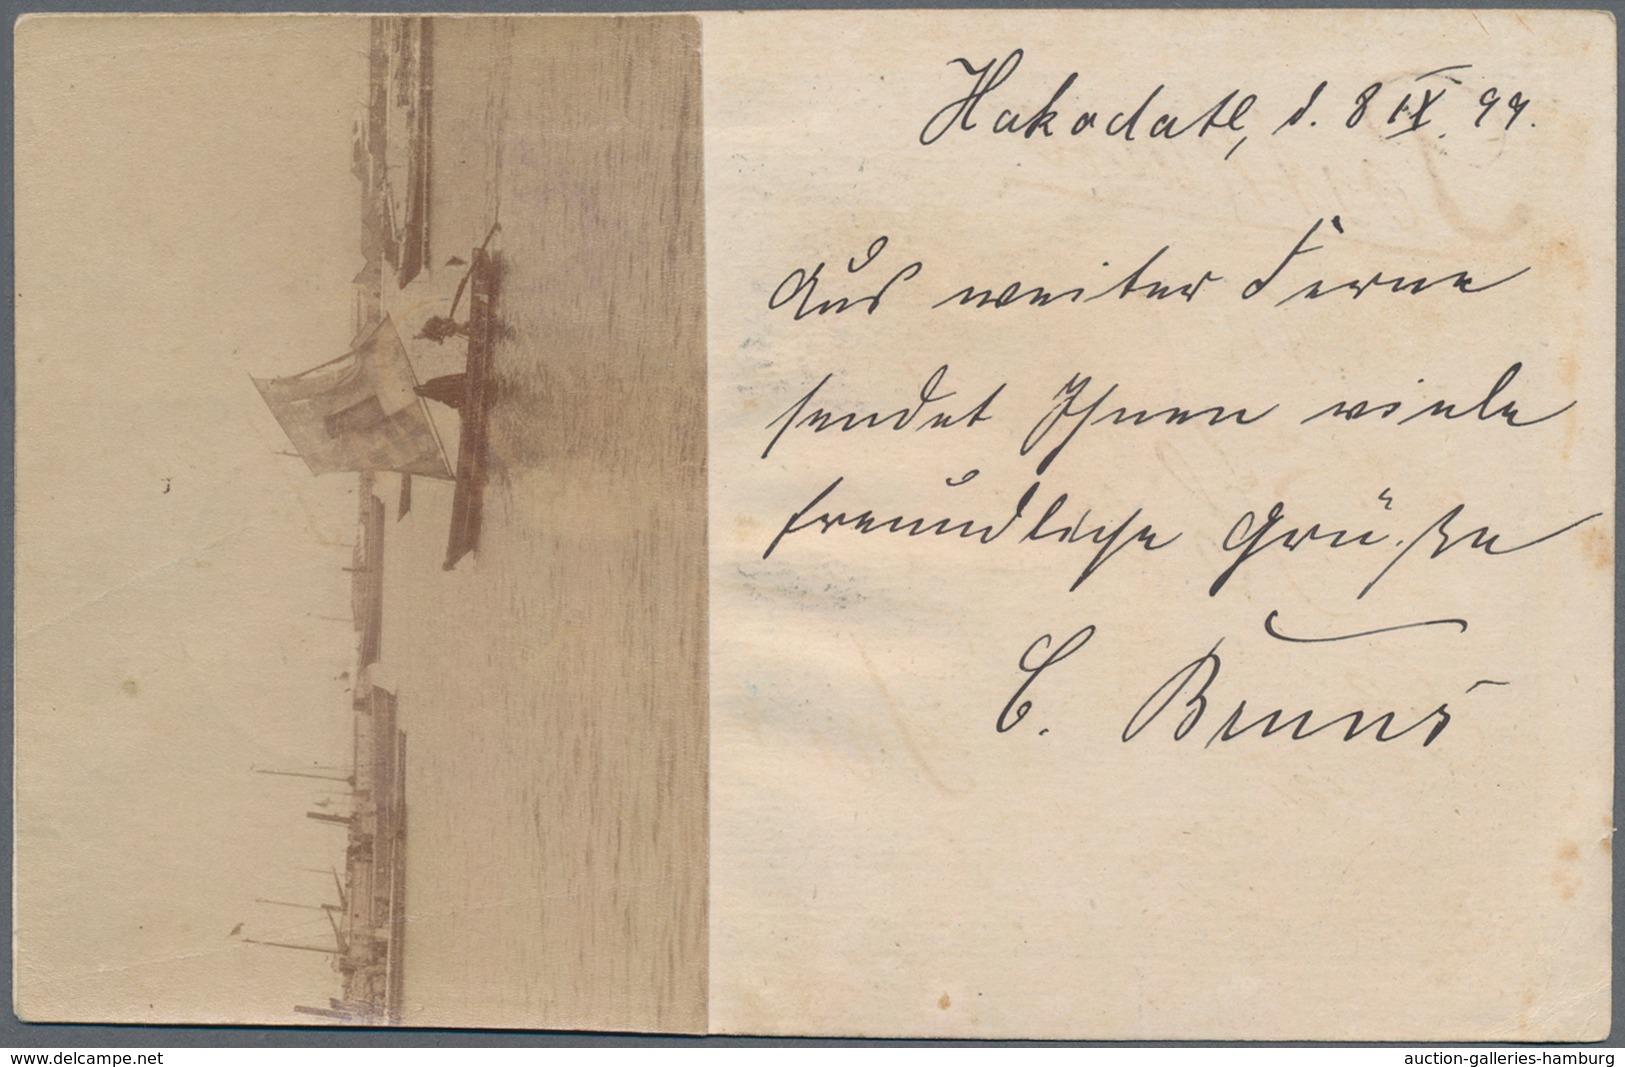 Hakodate, d. 8 IX. 99.
Aus weiter Ferne
sendet Ihnen viele
freundliche Grüße
C. Bruns
www.delcampe.net
auction-galleries-hamburg